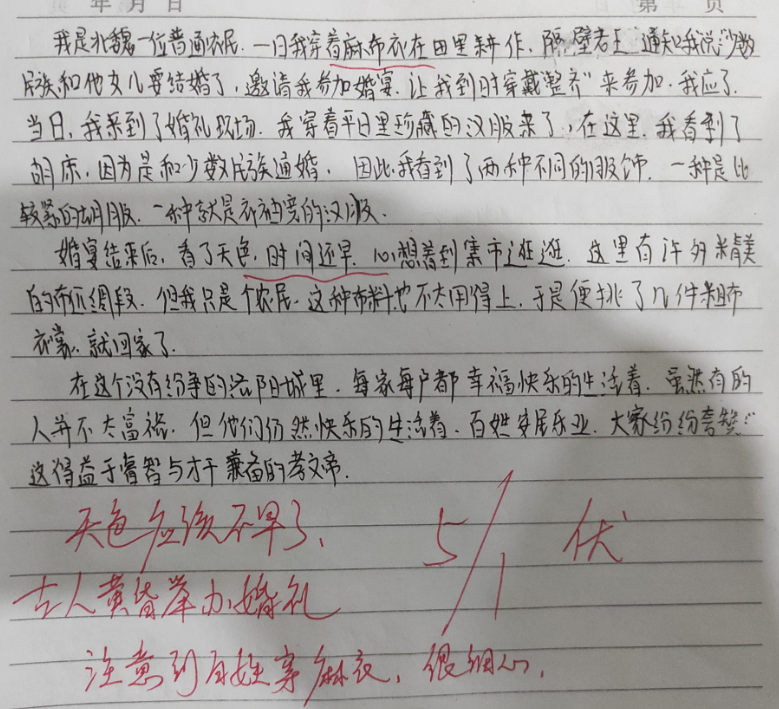 年 月 日 第 页
我是北魏一位普通农民.一日我穿着麻布衣在田里耕作,隔壁老王通知我说"少数
民族和他女儿要结婚了,邀请我参加婚宴.让我到时穿戴整齐"来参加.我应了.
当日,我来到了婚礼现场.我穿着平日里珍藏的汉服来了,在这里.我看到了
胡床,因为是和少数民族通婚,因此,我看到了两种不同的服饰.一种是比
较紧的胡服.一种就是衣袖宽的汉服.
婚宴结束后,看了天色,时间还早.心想着到集市逛逛.这里有许多精美
的布匹绸段.但我只是个农民.这种布料也不太用得上,于是便挑了几件粗布
衣裳.就回家了.
在这个没有纷争的洛阳城里.每家每户都幸福快乐的生活着.虽然有的
人并不太富裕.但他们仍然快乐的生活着.百姓安居乐业.大家纷纷夸赞:"
这得益于睿智与才干兼备的孝文帝.
天色应该不早了, 5/1
古人黄昏举办婚礼
注意到百姓穿麻衣,很细心,